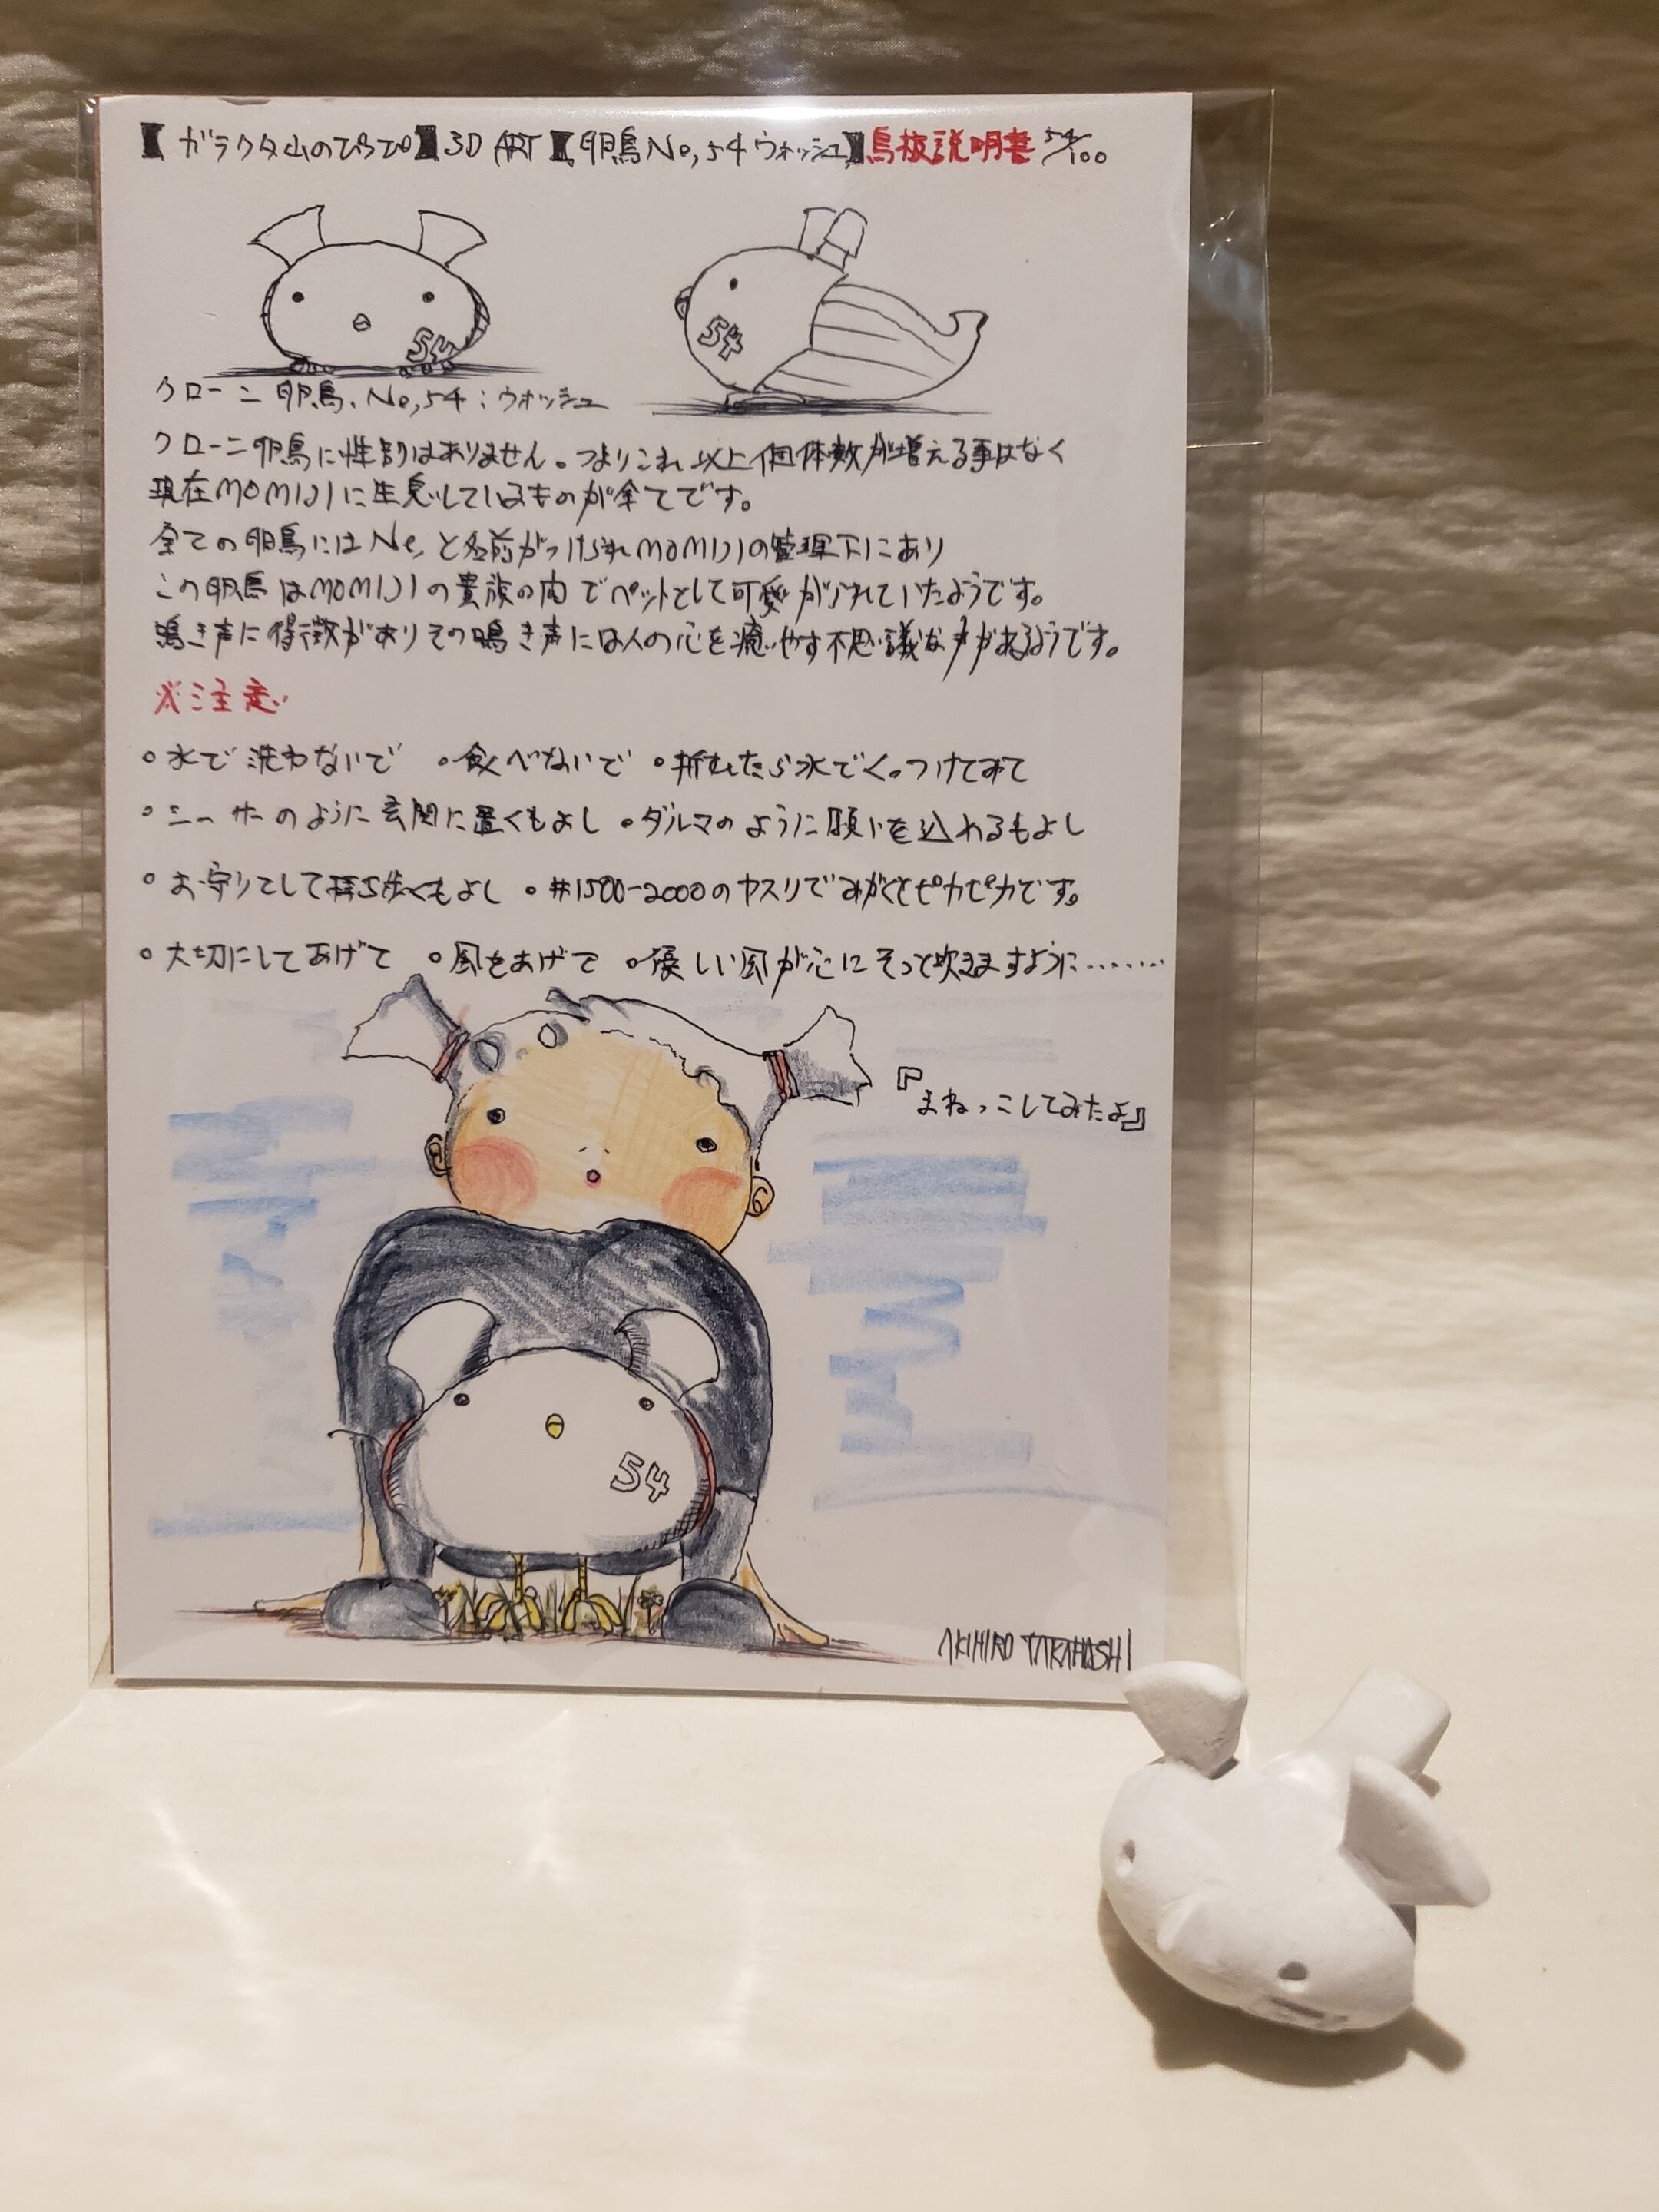 【ガラクタ山のぴっぴ】3D ART【卵鳥No,54ウォッシュ】鳥扱説明書 54/100
54
54
クローン卵鳥.No,54:ウォッシュ
クローン卵鳥に性別はありません。つまりこれ以上個体数が増える事はなく
現在MOMIJIに生息しているものが全てです。
全ての卵鳥にはNo,と名前がつけられMOMIJIの管理下にあり
この卵鳥はMOMIJIの貴族の内でペットとして可愛がられていたようです。
鳴き声に特徴がありその鳴き声には人の心を癒やす不思議な力があるようです。
※注意
・水で洗わないで ・食べないで ・折れたら水でくっつけてみて
・シーサーのように玄関に置くもよし ・ダルマのように願いを込めるもよし
・お守りとして持ち歩くもよし ・#1500-2000のヤスリでみがくとピカピカです。
・大切にしてあげて ・風をあげて ・優しい風が心にそっと吹きますように.......
『まねっこしてみたよ』
54
AKIHIRO TAKAHASHI